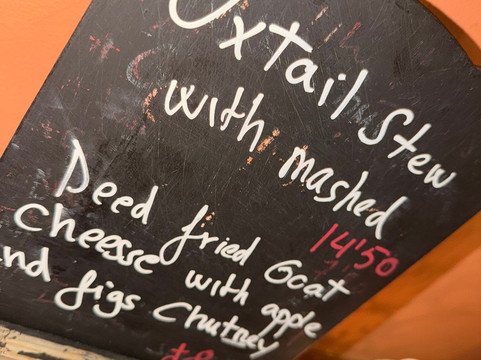 Oxtail Stew
with mashed
14'50
Deed fried Goat
cheesse with apple
nd figs Chutney